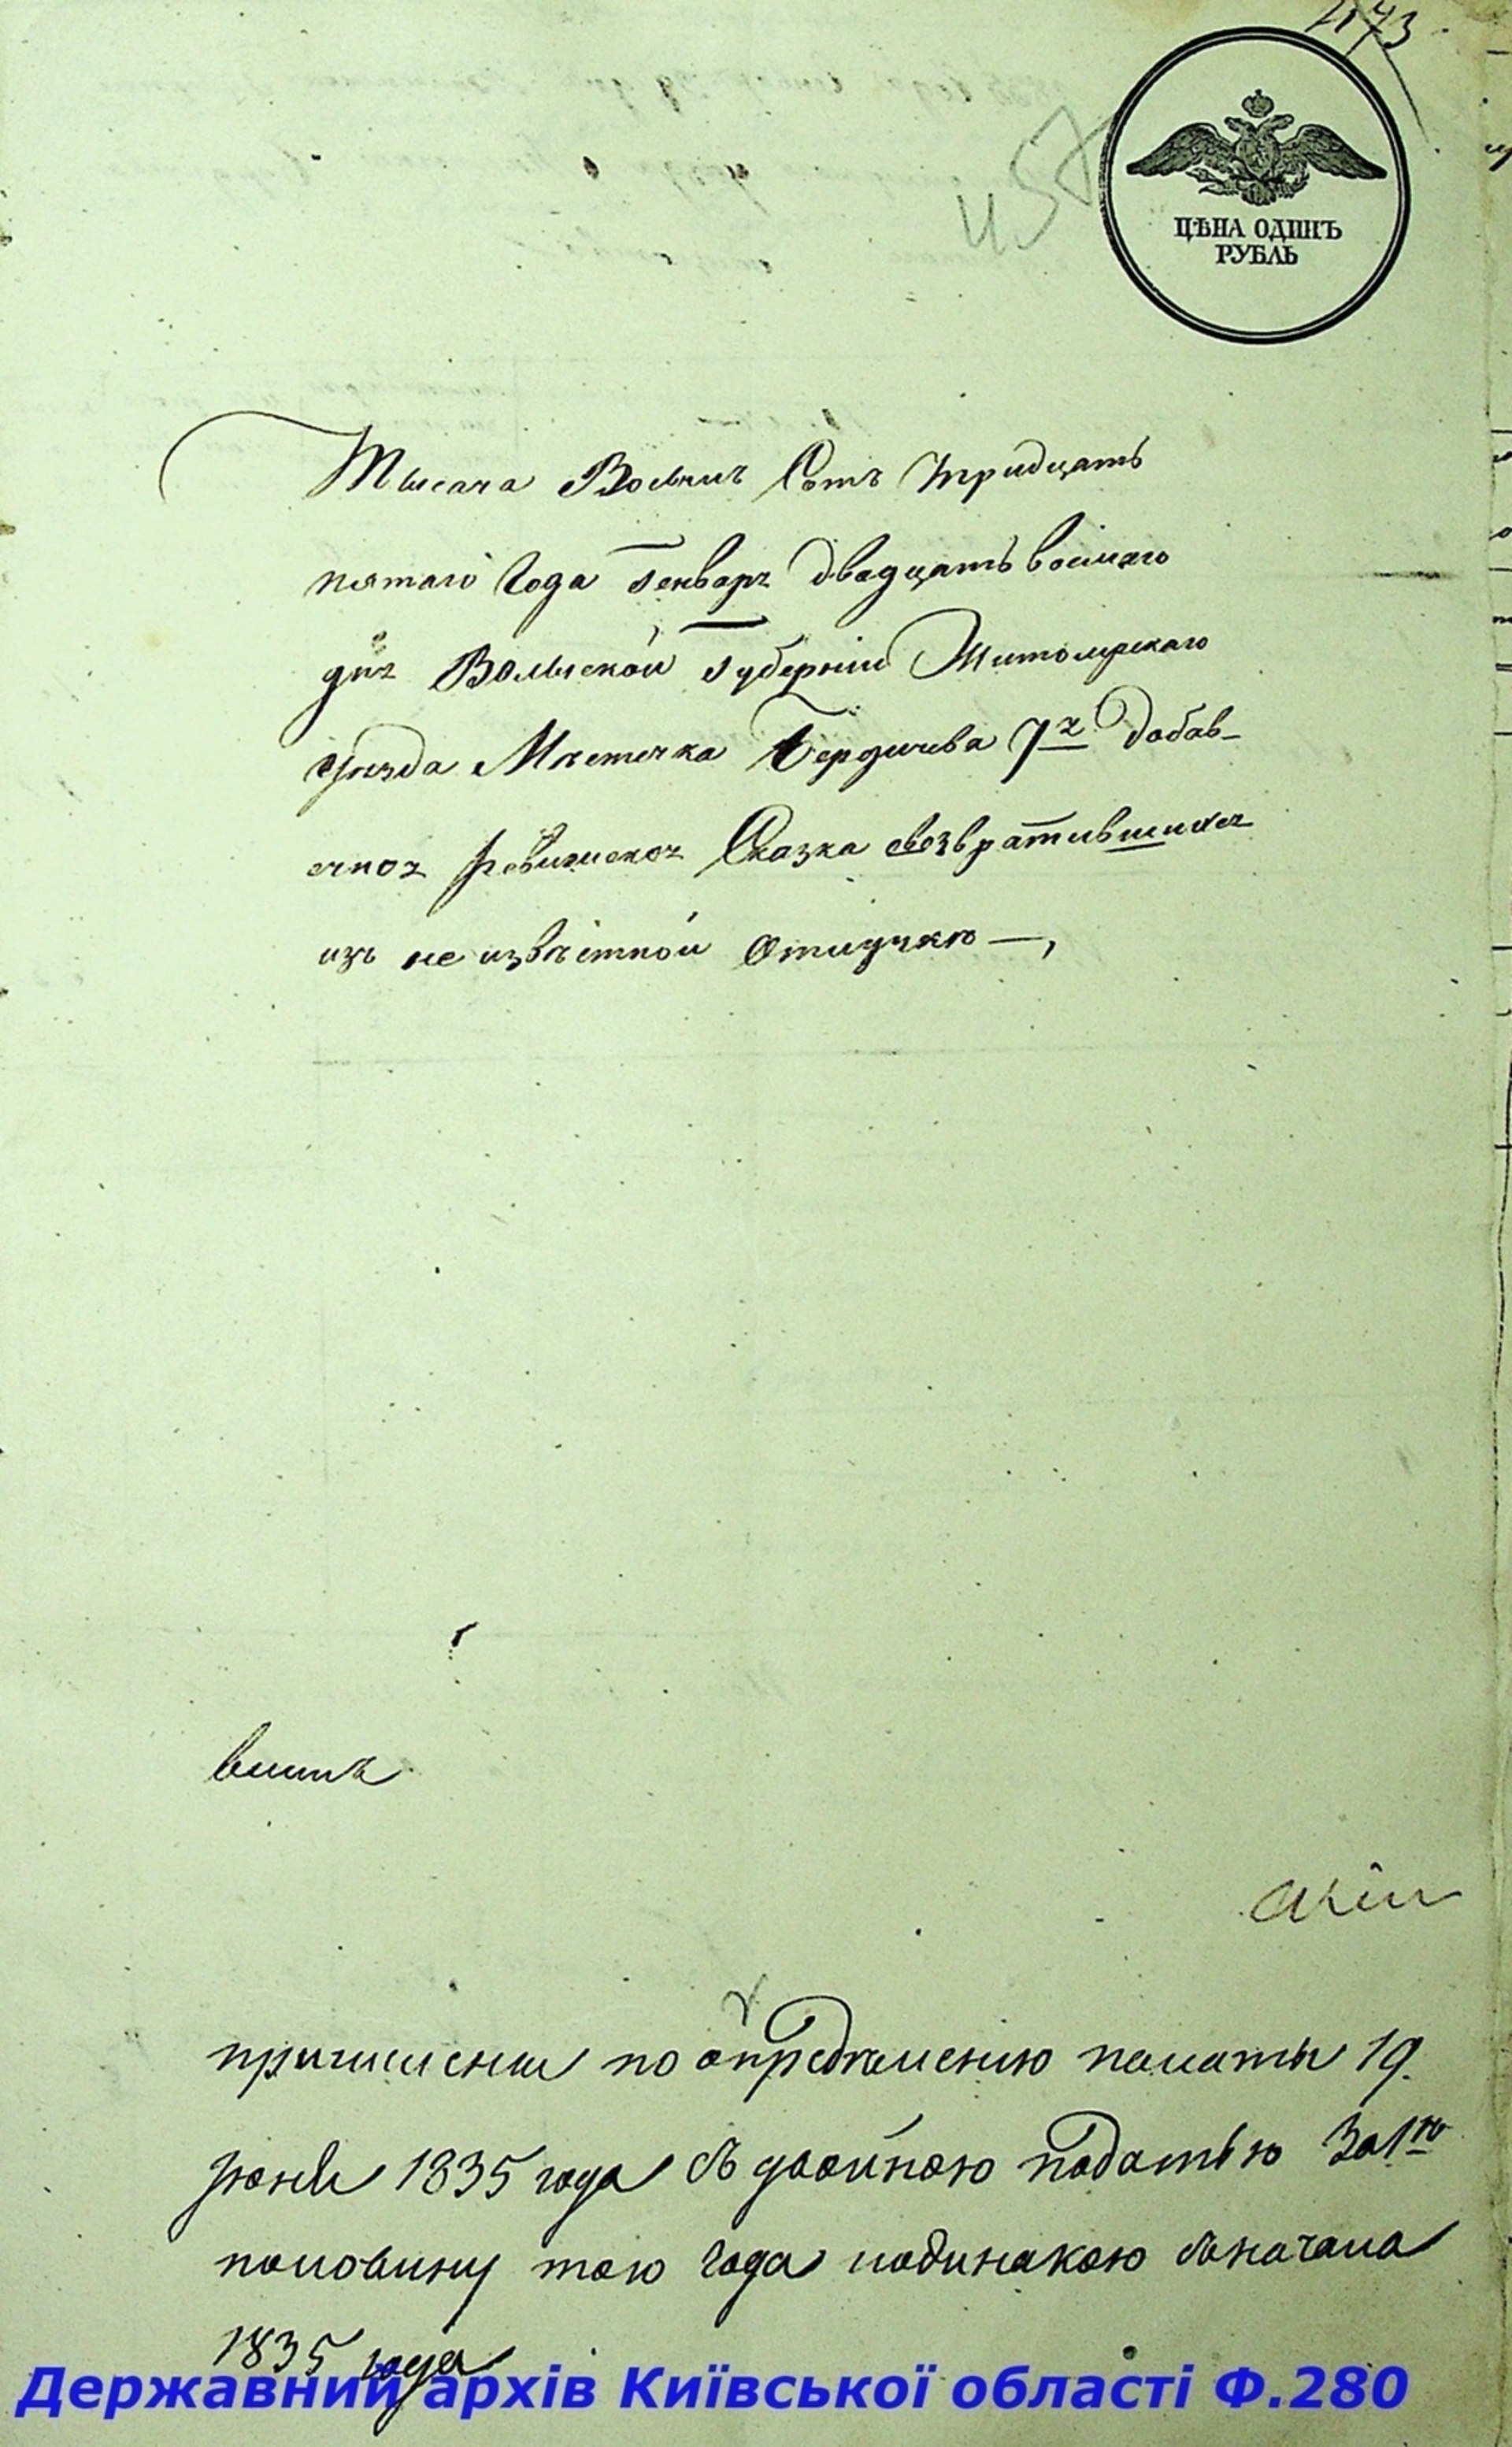 1173
457
ЦѢНА ОДИНЪ
РУБЛЬ
Тысяча Восемъ Сотъ тридцать
пятаго Года Генваря двадцать восмаго
дня Волынской Губерніи Житомирскаго
уѣзда Мѣстечка Бердичева 7я добав-
очная ревизская Сказка овозвратившихся
изъ не извѣстной отлучкѣ —,
причислены по опредѣленію палаты 19.
1835 года съ двойною податью За 1ю
половину того года иодинакою сьначала
1835 года
Державний архів Київської області Ф.280